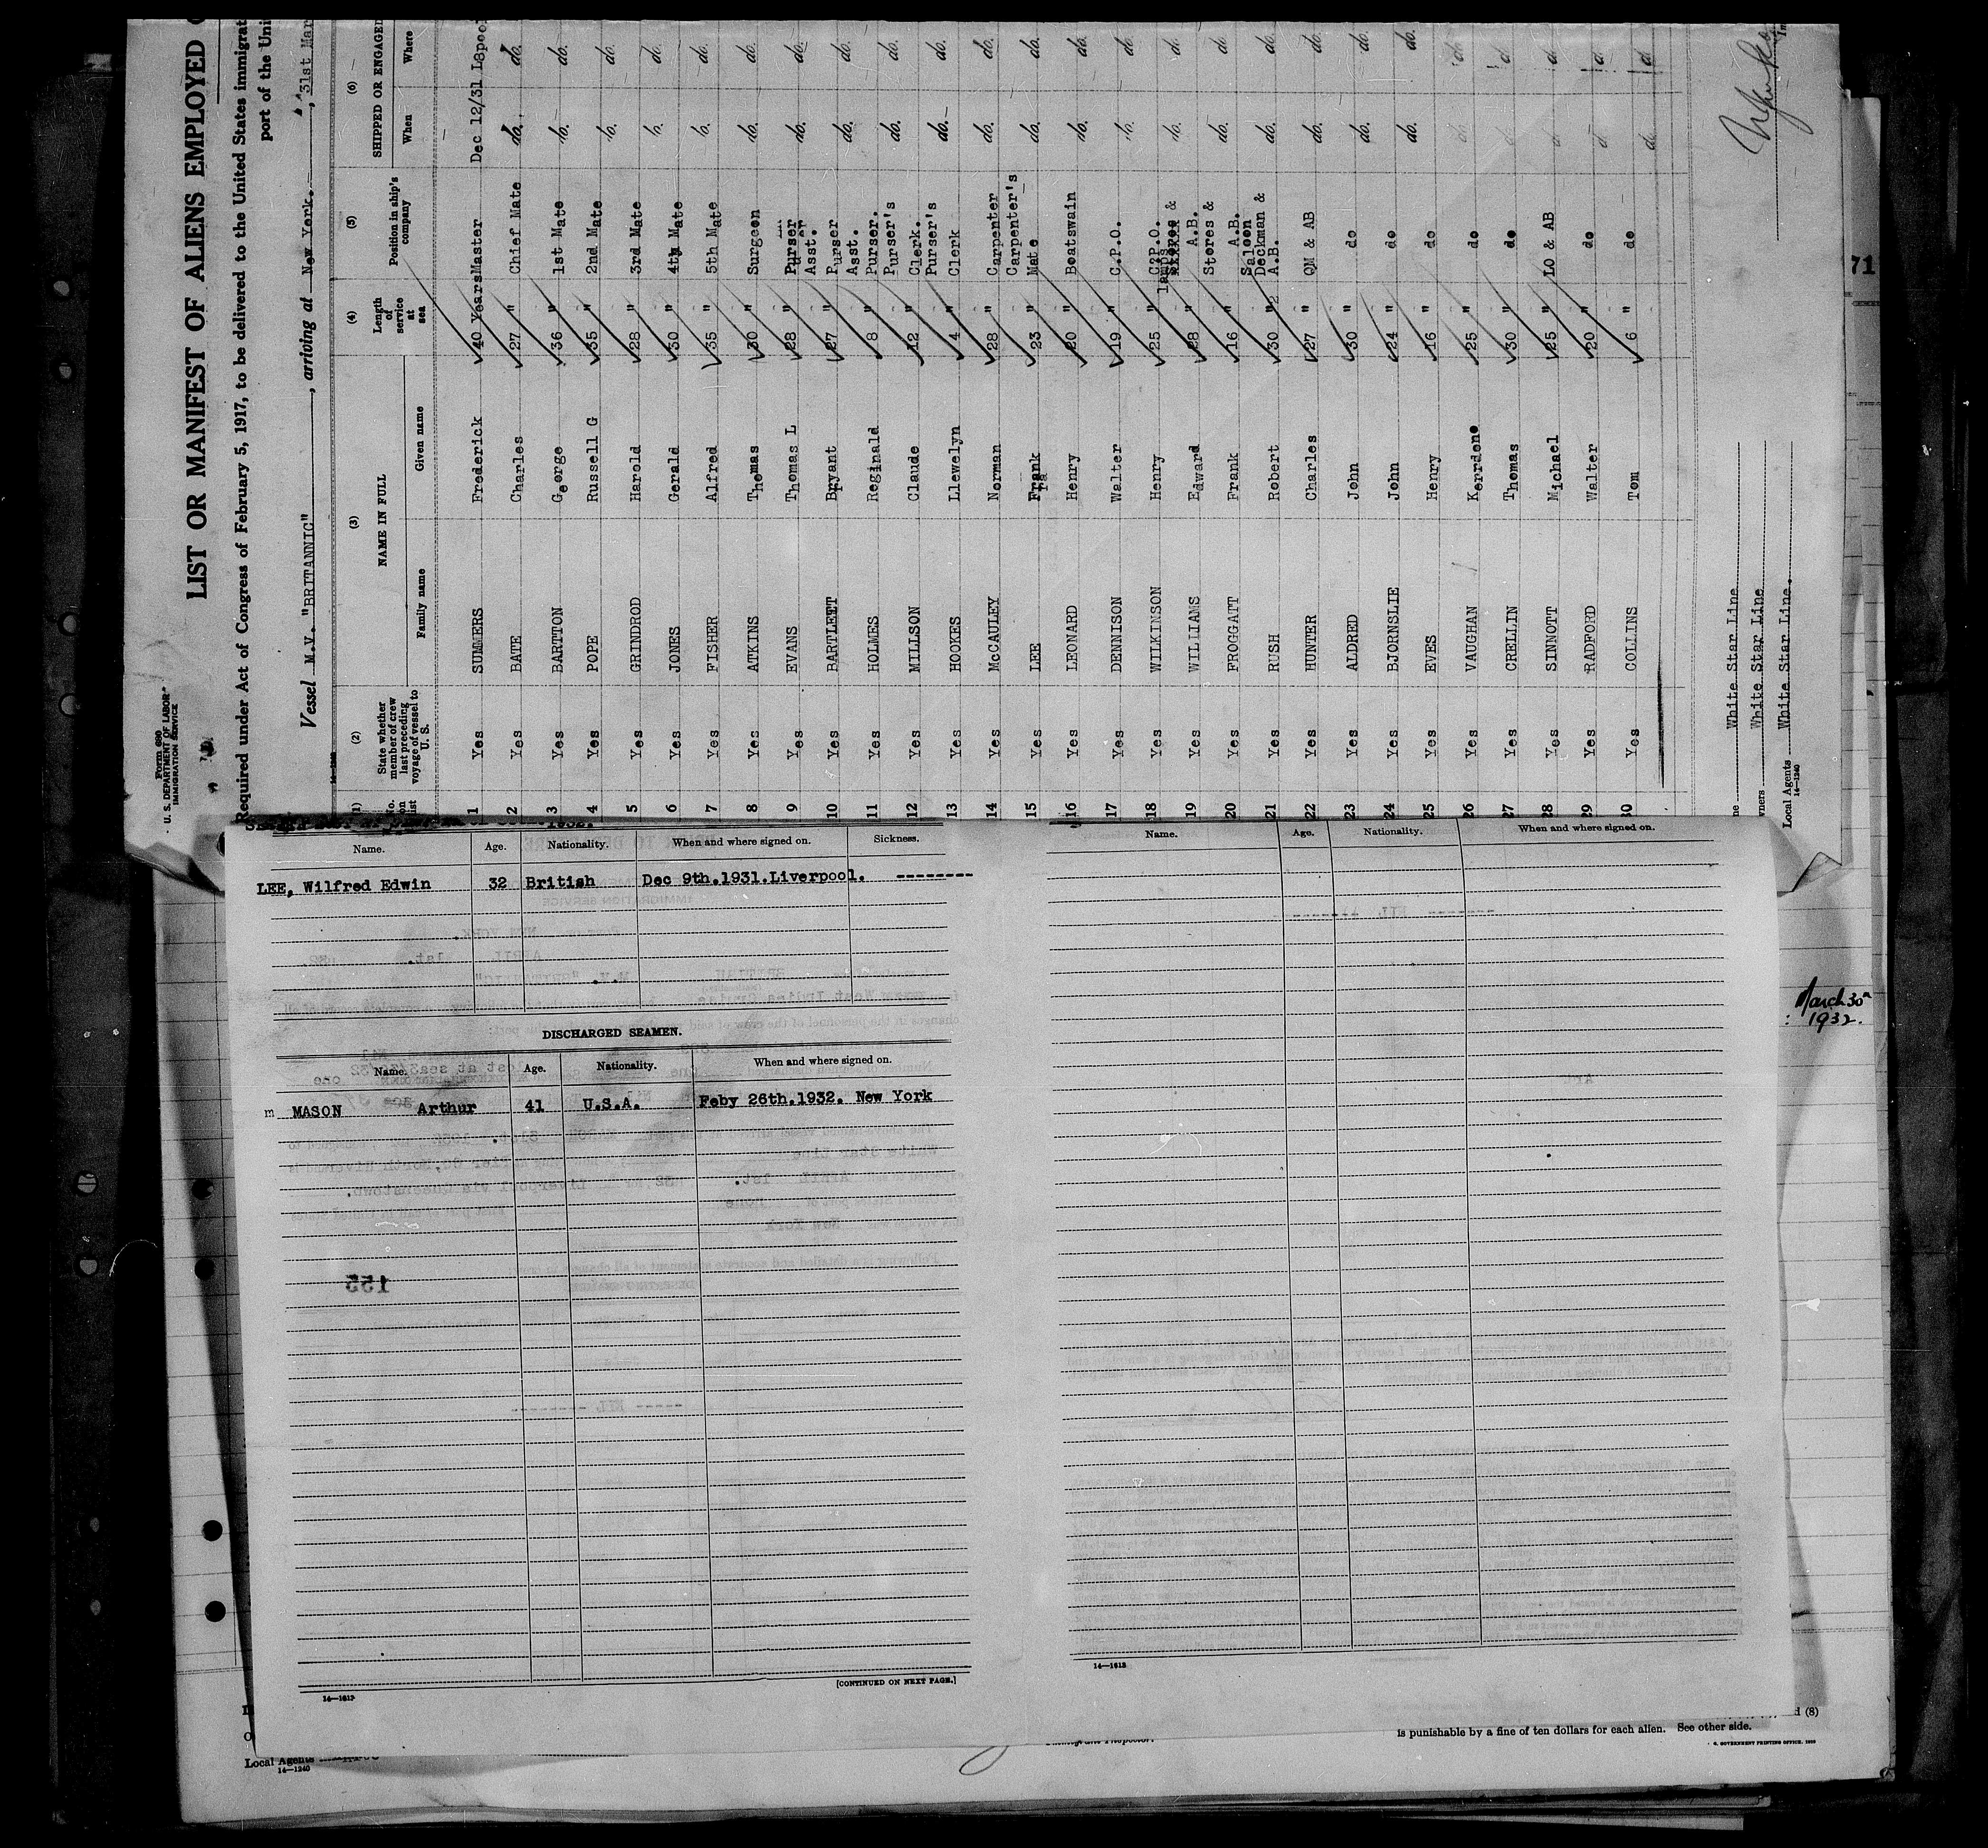 Form 680
U. S. DEPARTMENT OF LABOR
IMMIGRATION SERVICE
LIST OR MANIFEST OF ALIENS EMPLOYED
Required under Act of Congress of February 5, 1917, to be delivered to the United States immigrat
port of the Uni
Vessel M.V. "BRITANNIC", arriving at New York., 31st Mar
(1) (2) (3) (4) (5) (6)
No. on list
State whether member of crew last preceding voyage of vessel to U. S.
NAME IN FULL
Family name Given name
Length of service at sea
Position in ship's company
SHIPPED OR ENGAGED
When Where
1 Yes SUMMERS Frederick 40 Years Master Dec 12/31 L8pool
2 Yes BATE Charles 27 " Chief Mate do. do.
3 Yes BARTTON George 36 " 1st Mate do. do.
4 Yes POPE Russell G 35 " 2nd Mate do. do.
5 Yes GRINDROD Harold 28 " 3rd Mate do. do.
6 Yes JONES Gerald 30 " 4th Mate do. do.
7 Yes FISHER Alfred 35 " 5th Mate do. do.
8 Yes ATKINS Thomas 30 " Surgeon do. do.
9 Yes EVANS Thomas L 28 " Purser do. do.
10 Yes BARTLEET Bryant 27 " Asst. Purser do. do.
11 Yes HOLMES Reginald 8 " Asst. Purser. do. do.
12 Yes MILLSON Claude 12 " Purser's Clerk. do. do.
13 Yes HOOKES Llewelyn 4 " Purser's Clerk do. do.
14 Yes McCAULEY Norman 28 " Carpenter do. do.
15 Yes LEE Frank 23 " Carpenter's Mate do. do.
16 Yes LEONARD Henry 20 " Boatswain do. do.
17 Yes DENNISON Walter 19 " C.P.O. do. do.
18 Yes WILKINSON Henry 25 " C.P.O. do. do.
19 Yes WILLIAMS Edward 28 " lamps & A.B. do. do.
20 Yes FROGGATT Frank 16 " Stores & A.B. do. do.
21 Yes RUSH Robert 30 " Saloon Deckman & A.B. do. do.
22 Yes HUNTER Charles 27 " QM & AB do. do.
23 Yes ALDRED John 30 " do do. do.
24 Yes BJORNSLIE John 24 " do do. do.
25 Yes EVES Henry 16 " do do. do.
26 Yes VAUGHAN Kerdene 25 " do do. do.
27 Yes CRELLIN Thomas 30 " do d. d.
28 Yes SINNOTT Michael 25 " LO & AB d. d.
29 Yes RADFORD Walter 20 " do d. d.
30 Yes COLLINS Tom 6 " do d. d.
White Star Line
wners White Star Line
Local Agents White Star Line.
14—1240
71
Name. Age. Nationality. When and where signed on. Sickness.
LEE, Wilfred Edwin 32 British Dec 9th.1931.Liverpool. --------
DISCHARGED SEAMEN.
Name. Age. Nationality. When and where signed on.
m MASON Arthur 41 U.S.A. Feby 26th.1932. New York
155
[CONTINUED ON NEXT PAGE.]
14—1612
Name. Age. Nationality. When and where signed on.
14—1612
March 30th
1932.
d (8)
is punishable by a fine of ten dollars for each alien. See other side.
GOVERNMENT PRINTING OFFICE
Local Agents
14—1240